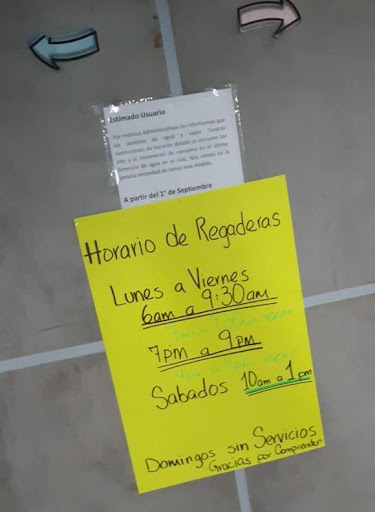 Estimado Usuario
Por motivos Administrativos les informamos que
los servicios de agua y vapor tendrán
restricciones de horarios debido al consumo tan
alto y el incremento de consumo en el último
bimestre de agua en el club. Nos vemos en la
necesidad de tomar esta medida.
A partir del 1° de Septiembre
Horario de Regaderas
Lunes a Viernes
6am a 9:30am
9:30am vapor
7pm a 9pm
vapor
Sabados 10am a 1pm
Domingos sin Servicios
Gracias por Comprender